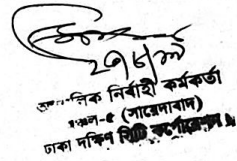 ২৭/৮/১৮
আঞ্চলিক নির্বাহী কর্মকর্তা
অঞ্চল-৫ (সায়েদাবাদ)
ঢাকা দক্ষিণ সিটি কর্পোরেশন